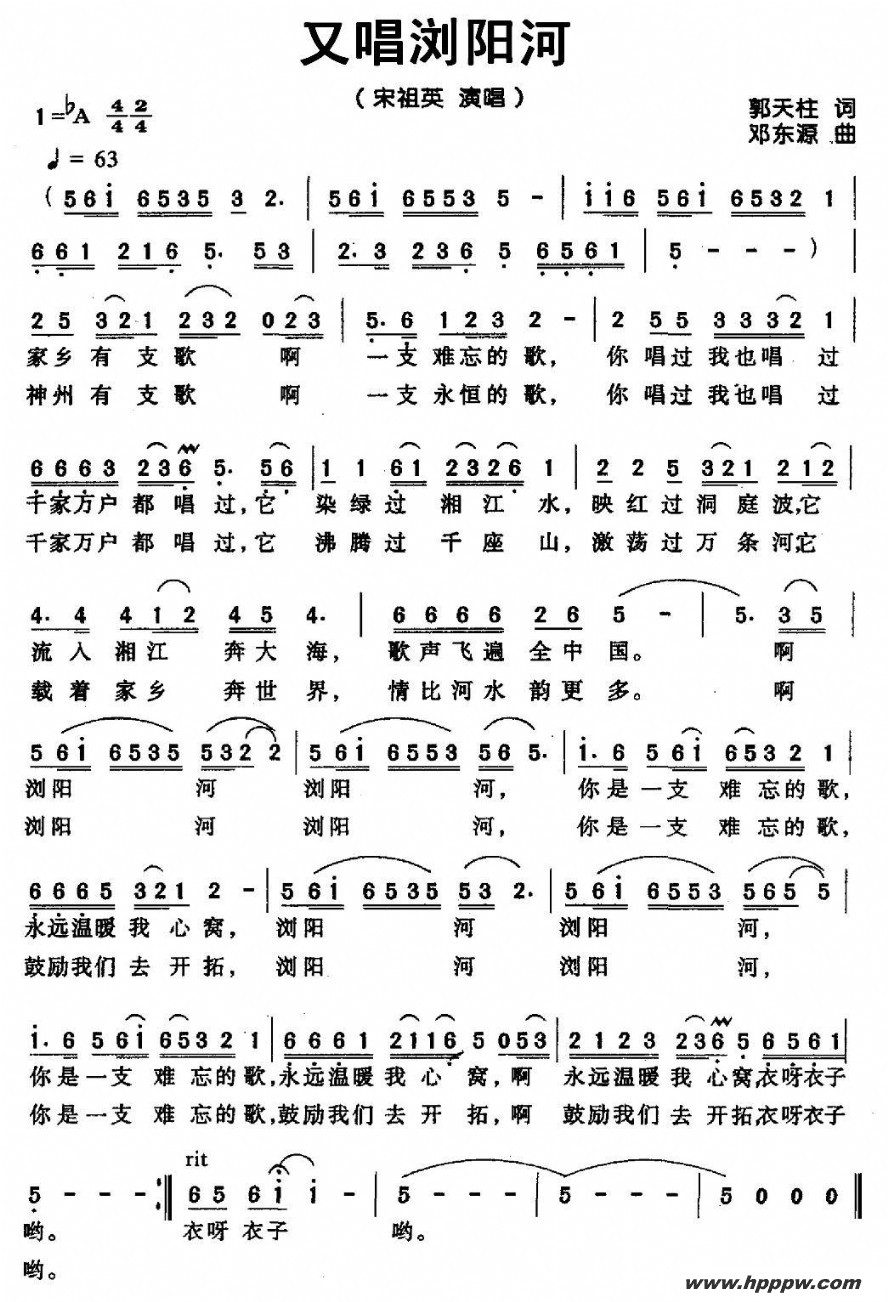 又唱浏阳河
（宋祖英 演唱）
1=♭A 4/4 2/4
郭天柱 词
♩= 63
邓东源 曲
(561 6535 3 2. | 561 6553 5 - | 116 561 65321 |
661 216 5. 53 | 2.3 236 5 6561 | 5 - - - )
25 321 232 023 | 5.6 123 2 - | 2 55 3332 1 |
家乡有支歌 啊 一支难忘的歌， 你唱过我也唱 过
神州有支歌 啊 一支永恒的歌， 你唱过我也唱 过
6663 236 5. 56 | 1 1 61 2326 1 | 2 2 5 321 212 |
千家万户都唱过，它 染绿过 湘江 水，映红过洞庭波，它
千家万户都唱过，它 沸腾过 千座 山，激荡过万条河，它
4. 4 4 12 45 4. | 6666 26 5 - | 5. 35 |
流入湘江 奔大海， 歌声飞遍全中国。 啊
载着家乡 奔世界， 情比河水韵更多。 啊
561 6535 5322 | 561 6553 56 5. | 1.6 561 65321 |
浏阳 河 浏阳 河， 你是一支 难忘的歌，
浏阳 河 浏阳 河， 你是一支 难忘的歌，
6665 321 2 - | 561 6535 53 2. | 561 6553 565 5 |
永远温暖我心窝， 浏阳 河 浏阳 河，
鼓励我们去开拓， 浏阳 河 浏阳 河，
1.6 561 65321 | 6661 2116 5 053 | 2123 236 5 6561 |
你是一支 难忘的歌，永远温暖我心窝，啊 永远温暖我心窝，衣呀衣子
你是一支 难忘的歌，鼓励我们去开拓，啊 鼓励我们去开拓，衣呀衣子
rit
5 - - - :‖ 65 61 1 - | 5 - - - | 5 - - - | 5 0 0 0 ‖
哟。 衣呀衣子 哟。
哟。
www.hpppw.com